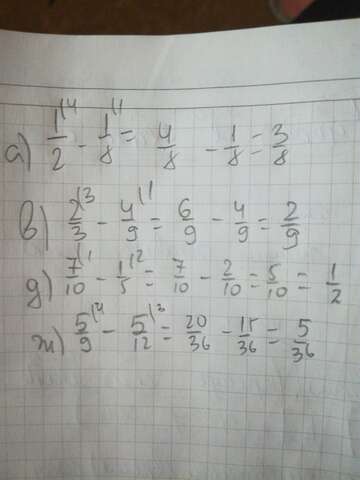 а) 1/2 |4 - 1/8 |1 = 4/8 - 1/8 = 3/8
в) 2/3 |3 - 4/9 |1 = 6/9 - 4/9 = 2/9
д) 7/10 |1 - 1/5 |2 = 7/10 - 2/10 = 5/10 = 1/2
ж) 5/9 |4 - 5/12 |3 = 20/36 - 15/36 = 5/36